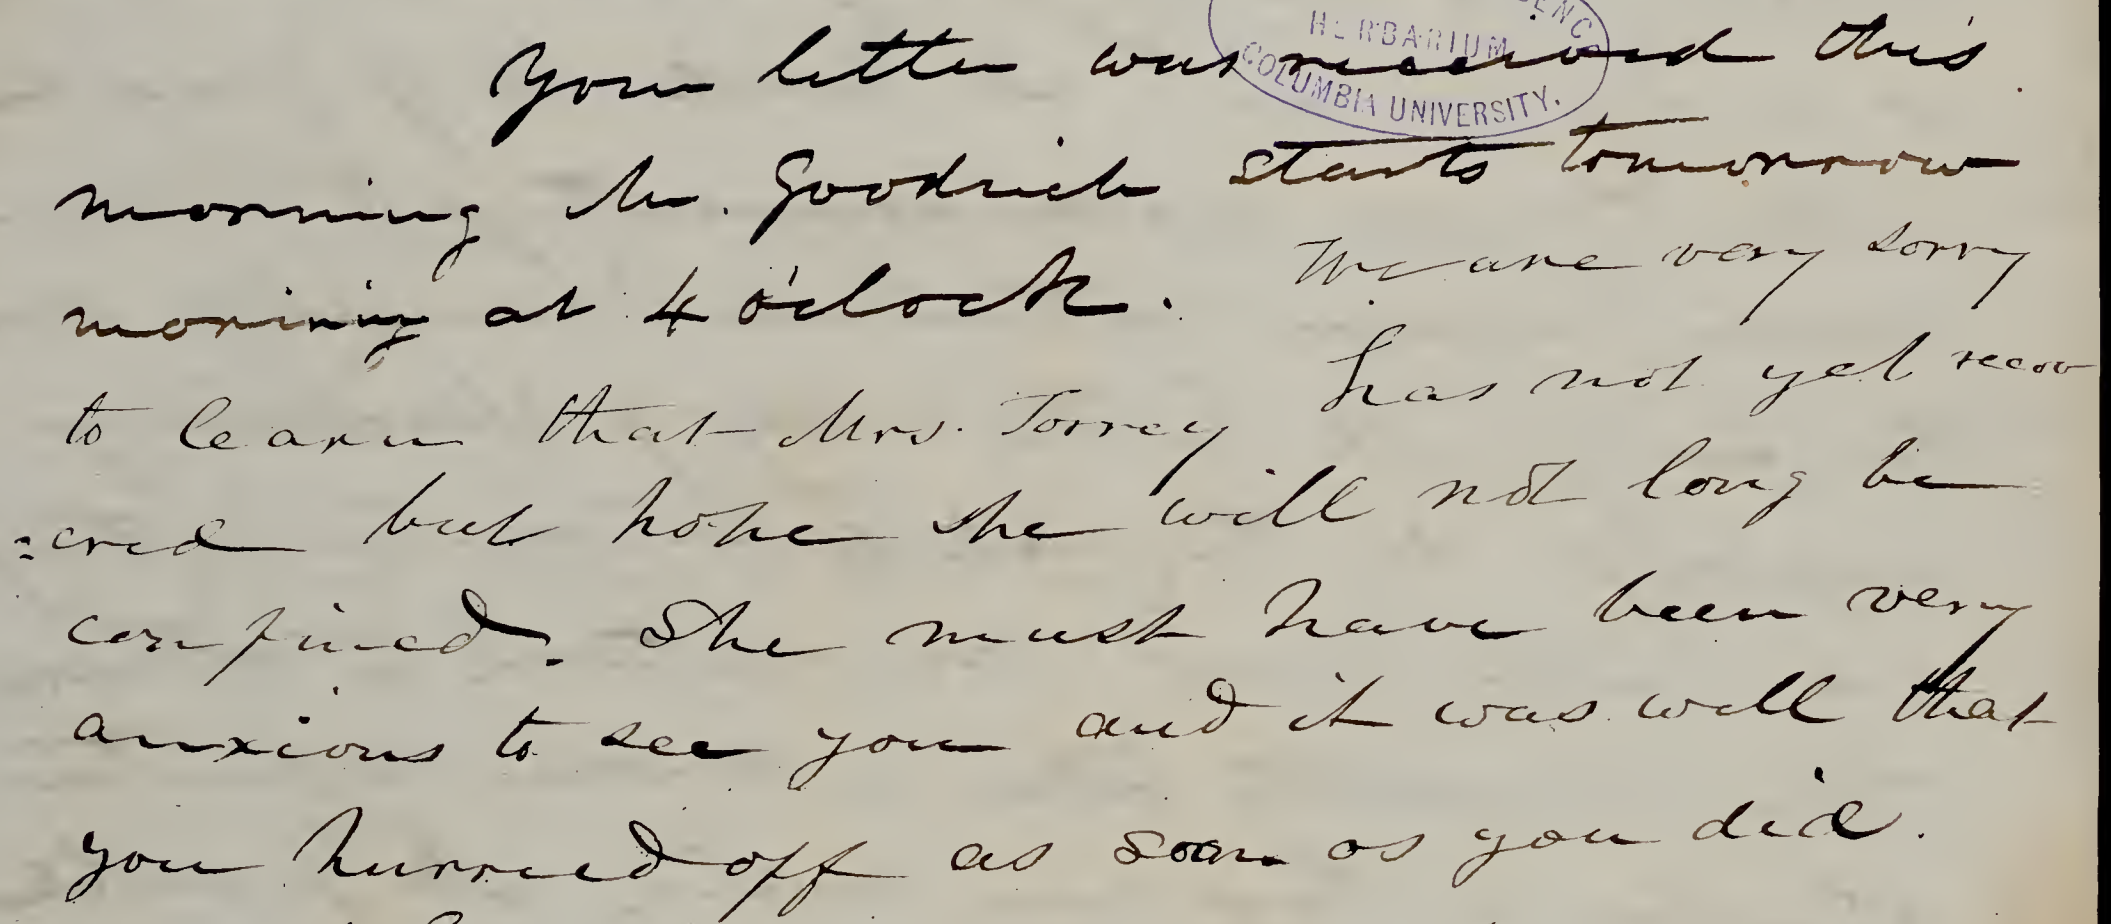 HERBARIUM
COLUMBIA UNIVERSITY.
Your letter was received this
morning Mr. Goodrich starts tomorrow
morining at 4 o'clock. We are very sorry
to learn that Mrs. Torrey has not yet recov
=ered but hope she will not long be
confined. She must have been very
anxious to see you and it was well that
you hurried off as soon as you did.